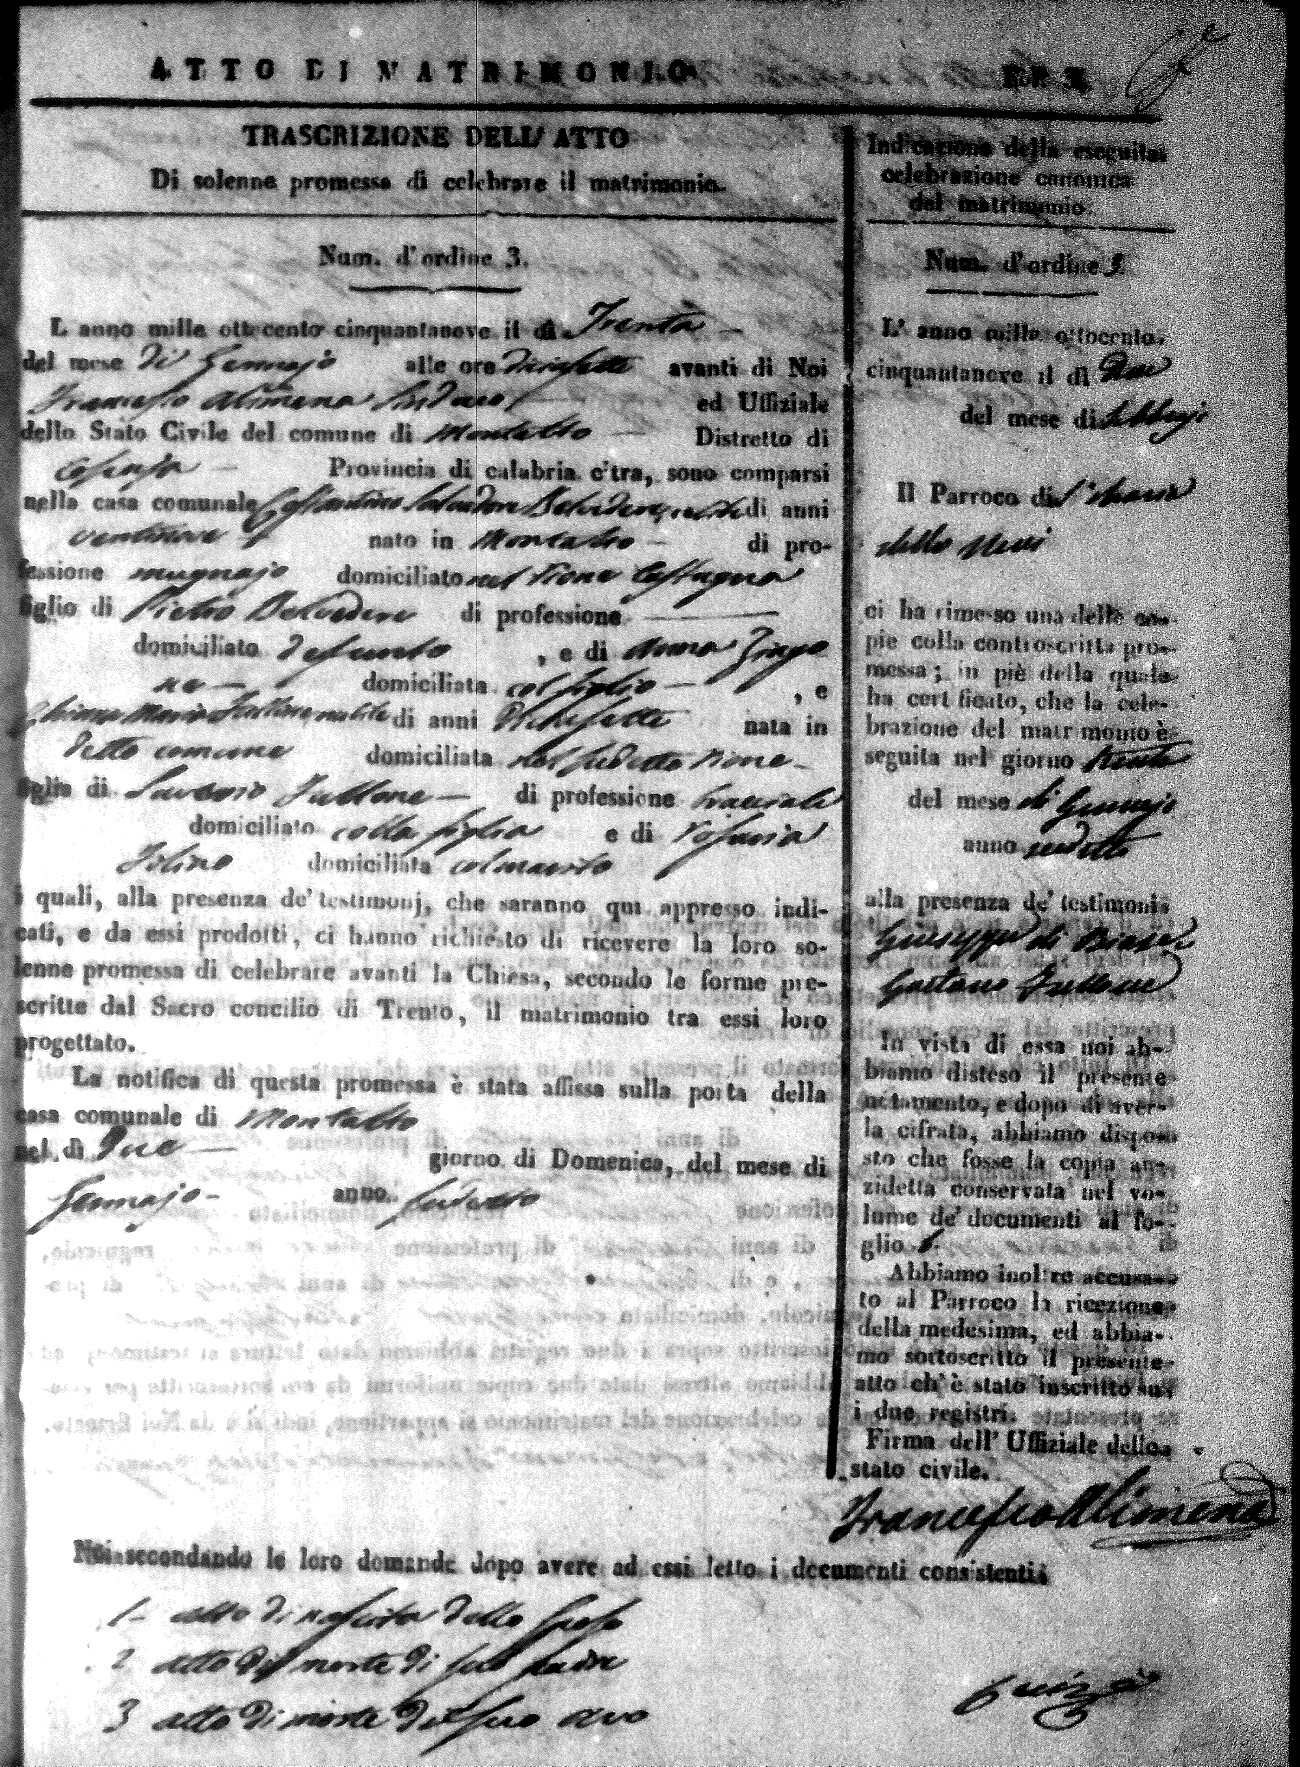 ATTO DI MATRIMONIO
TRASCRIZIONE DELL' ATTO
Di solenne promessa di celebrare il matrimonio.
Num. d'ordine 3.
L anno mille ottocento cinquantanove il dì Trenta
del mese di Gennajo alle ore diciasette avanti di Noi
Francesco Alimena Sindaco ed Uffiziale
dello Stato Civile del comune di Montalto Distretto di
Cosenza Provincia di calabria c'tra, sono comparsi
nella casa comunale Costantino Salvadore Belvedere, nubile di anni
ventinove nato in Montalto di pro-
fessione mugnajo domiciliato nel Rione Castagna
figlio di Pietro Belvedere di professione
domiciliato defunto , e di Anna
domiciliata col figlio , e
Maria nubile di anni Diciasette nata in
detto comune domiciliata nel sudetto Rione
figlia di Saverio Fullone di professione bracciale
domiciliato colla figlia e di Rosaria
domiciliata col marito
i quali, alla presenza de' testimonj, che saranno qui appresso indi-
cati, e da essi prodotti, ci hanno richiesto di ricevere la loro so-
lenne promessa di celebrare avanti la Chiesa, secondo le forme pre-
scritte dal Sacro concilio di Trento, il matrimonio tra essi loro
progettato.
La notifica di questa promessa è stata affissa sulla porta della
casa comunale di Montalto
nel dì Due giorno di Domenica, del mese di
Gennajo anno sudetto
Noi secondando le loro domande dopo avere ad essi letto i documenti consistenti
1 atto di nascita dello sposo
2 atto di morte di suo padre
3 atto di morte del suo avo
Indicazione della eseguita
celebrazione canonica
del matrimonio.
Num. d'ordine 3.
L' anno mille ottocento
cinquantanove il dì Due
del mese di Febbrajo
Il Parroco di S. Maria
della Neve
ci ha rimesso una delle co-
pie colla controscritta pro-
messa; in piè della quale
ha certificato, che la cele-
brazione del matrimonio è
seguita nel giorno trenta
del mese di Gennajo
anno sudetto
alla presenza de' testimoni
Giuseppe di Biase e
Gaetano Fullone
In vista di essa noi ab-
biamo disteso il presente
notamento, e dopo di aver-
la cifrata, abbiamo dispo-
sto che fosse la copia an-
zidetta conservata nel vo-
lume de' documenti al fo-
glio
Abbiamo inoltre accusa-
to al Parroco la ricezione
della medesima, ed abbia-
mo sottoscritto il presente
atto ch'è stato inscritto su
i due registri.
Firma dell' Uffiziale dello
stato civile.
Francesco Alimena